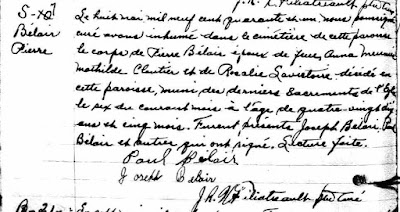 J. R. A. Filiatreault ptre curé
S-10
Bélair
Pierre
Le huit mai mil neuf cent quarante et un, nous soussigné
curé avons inhumé dans le cimetière de cette paroisse
le corps de Pierre Bélair époux de feues Anna
Mathilde Cloutier et de Rosalie décédé en
cette paroisse, muni des derniers Sacrements de l'Egl
le six du courant mois à l'âge de quatre-vingt dix
ans et cinq mois. Furent présents Joseph Bélair, Paul
Bélair et autres qui ont signé. Lecture faite.
Paul Bélair
Joseph Bélair
Filiatreault ptre curé